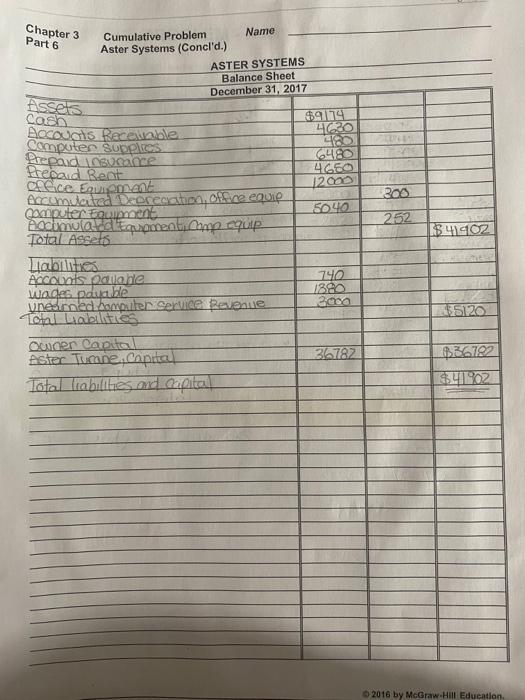 Chapter 3 Cumulative Problem Name
Part 6 Aster Systems (Concl'd.)
ASTER SYSTEMS
Balance Sheet
December 31, 2017
Assets
Cash $9174
Accounts Receivable 4630
Computer Supplies 480
Prepaid insurance 6480
Prepaid Rent 4650
Office Equipment 12000
Accumulated Depreciation, office equip 300
Computer Equipment 5040
Equipment, Comp equip 252
Total Assets $41902
Liabilities
Accounts payable 740
Wages payable 1380
unearned computer service Revenue 3000
Total Liabilities $5120
Owner Capital
Aster Turane, Capital 36782 $36782
Total liabilities and capital $41902
© 2016 by McGraw-Hill Education.